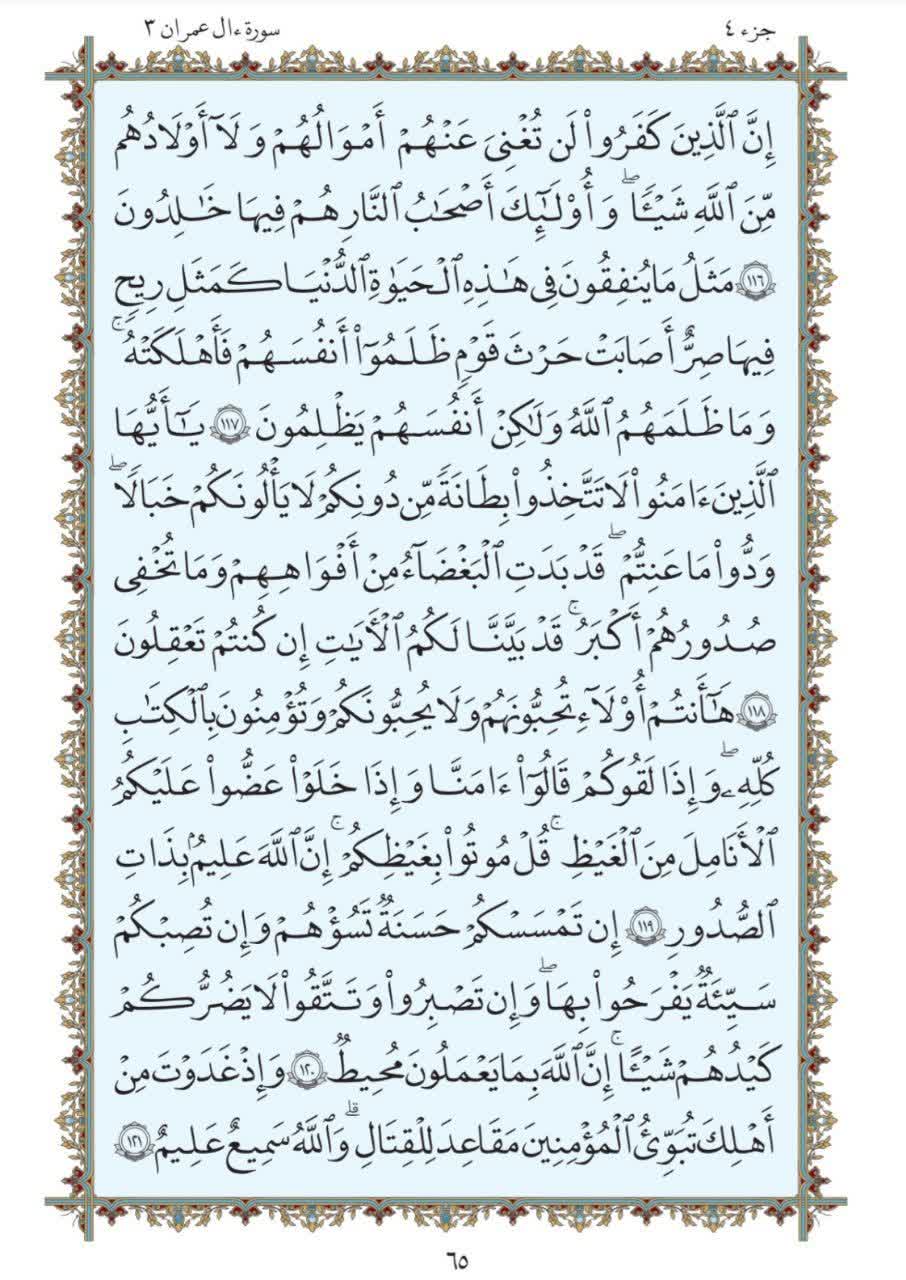 سورة ءال عمران ٣
جزء ٤
إِنَّ ٱلَّذِينَ كَفَرُوا۟ لَن تُغْنِىَ عَنْهُمْ أَمْوَٰلُهُمْ وَلَآ أَوْلَٰدُهُم
مِّنَ ٱللَّهِ شَيْـًٔا ۖ وَأُو۟لَٰٓئِكَ أَصْحَٰبُ ٱلنَّارِ هُمْ فِيهَا خَٰلِدُونَ
١١٦ مَثَلُ مَا يُنفِقُونَ فِى هَٰذِهِ ٱلْحَيَوٰةِ ٱلدُّنْيَا كَمَثَلِ رِيحٍ
فِيهَا صِرٌّ أَصَابَتْ حَرْثَ قَوْمٍ ظَلَمُوٓا۟ أَنفُسَهُمْ فَأَهْلَكَتْهُ ۚ
وَمَا ظَلَمَهُمُ ٱللَّهُ وَلَٰكِنْ أَنفُسَهُمْ يَظْلِمُونَ ١١٧ يَٰٓأَيُّهَا
ٱلَّذِينَ ءَامَنُوا۟ لَا تَتَّخِذُوا۟ بِطَانَةً مِّن دُونِكُمْ لَا يَأْلُونَكُمْ خَبَالًا ۖ
وَدُّوا۟ مَا عَنِتُّمْ ۖ قَدْ بَدَتِ ٱلْبَغْضَآءُ مِنْ أَفْوَٰهِهِمْ وَمَا تُخْفِى
صُدُورُهُمْ أَكْبَرُ ۚ قَدْ بَيَّنَّا لَكُمُ ٱلْـَٔايَٰتِ إِن كُنتُمْ تَعْقِلُونَ
١١٨ هَٰٓأَنتُمْ أُو۟لَآءِ تُحِبُّونَهُمْ وَلَا يُحِبُّونَكُمْ وَتُؤْمِنُونَ بِٱلْكِتَٰبِ
كُلِّهِۦ ۖ وَإِذَا لَقُوكُمْ قَالُوٓا۟ ءَامَنَّا وَإِذَا خَلَوْا۟ عَضُّوا۟ عَلَيْكُمُ
ٱلْأَنَامِلَ مِنَ ٱلْغَيْظِ ۚ قُلْ مُوتُوا۟ بِغَيْظِكُمْ ۚ إِنَّ ٱللَّهَ عَلِيمٌۢ بِذَاتِ
ٱلصُّدُورِ ١١٩ إِن تَمْسَسْكُمْ حَسَنَةٌ تَسُؤْهُمْ وَإِن تُصِبْكُمْ
سَيِّئَةٌ يَفْرَحُوا۟ بِهَا ۖ وَإِن تَصْبِرُوا۟ وَتَتَّقُوا۟ لَا يَضُرُّكُمْ
كَيْدُهُمْ شَيْـًٔا ۗ إِنَّ ٱللَّهَ بِمَا يَعْمَلُونَ مُحِيطٌ ١٢٠ وَإِذْ غَدَوْتَ مِنْ
أَهْلِكَ تُبَوِّئُ ٱلْمُؤْمِنِينَ مَقَٰعِدَ لِلْقِتَالِ ۗ وَٱللَّهُ سَمِيعٌ عَلِيمٌ ١٢١
٦٥